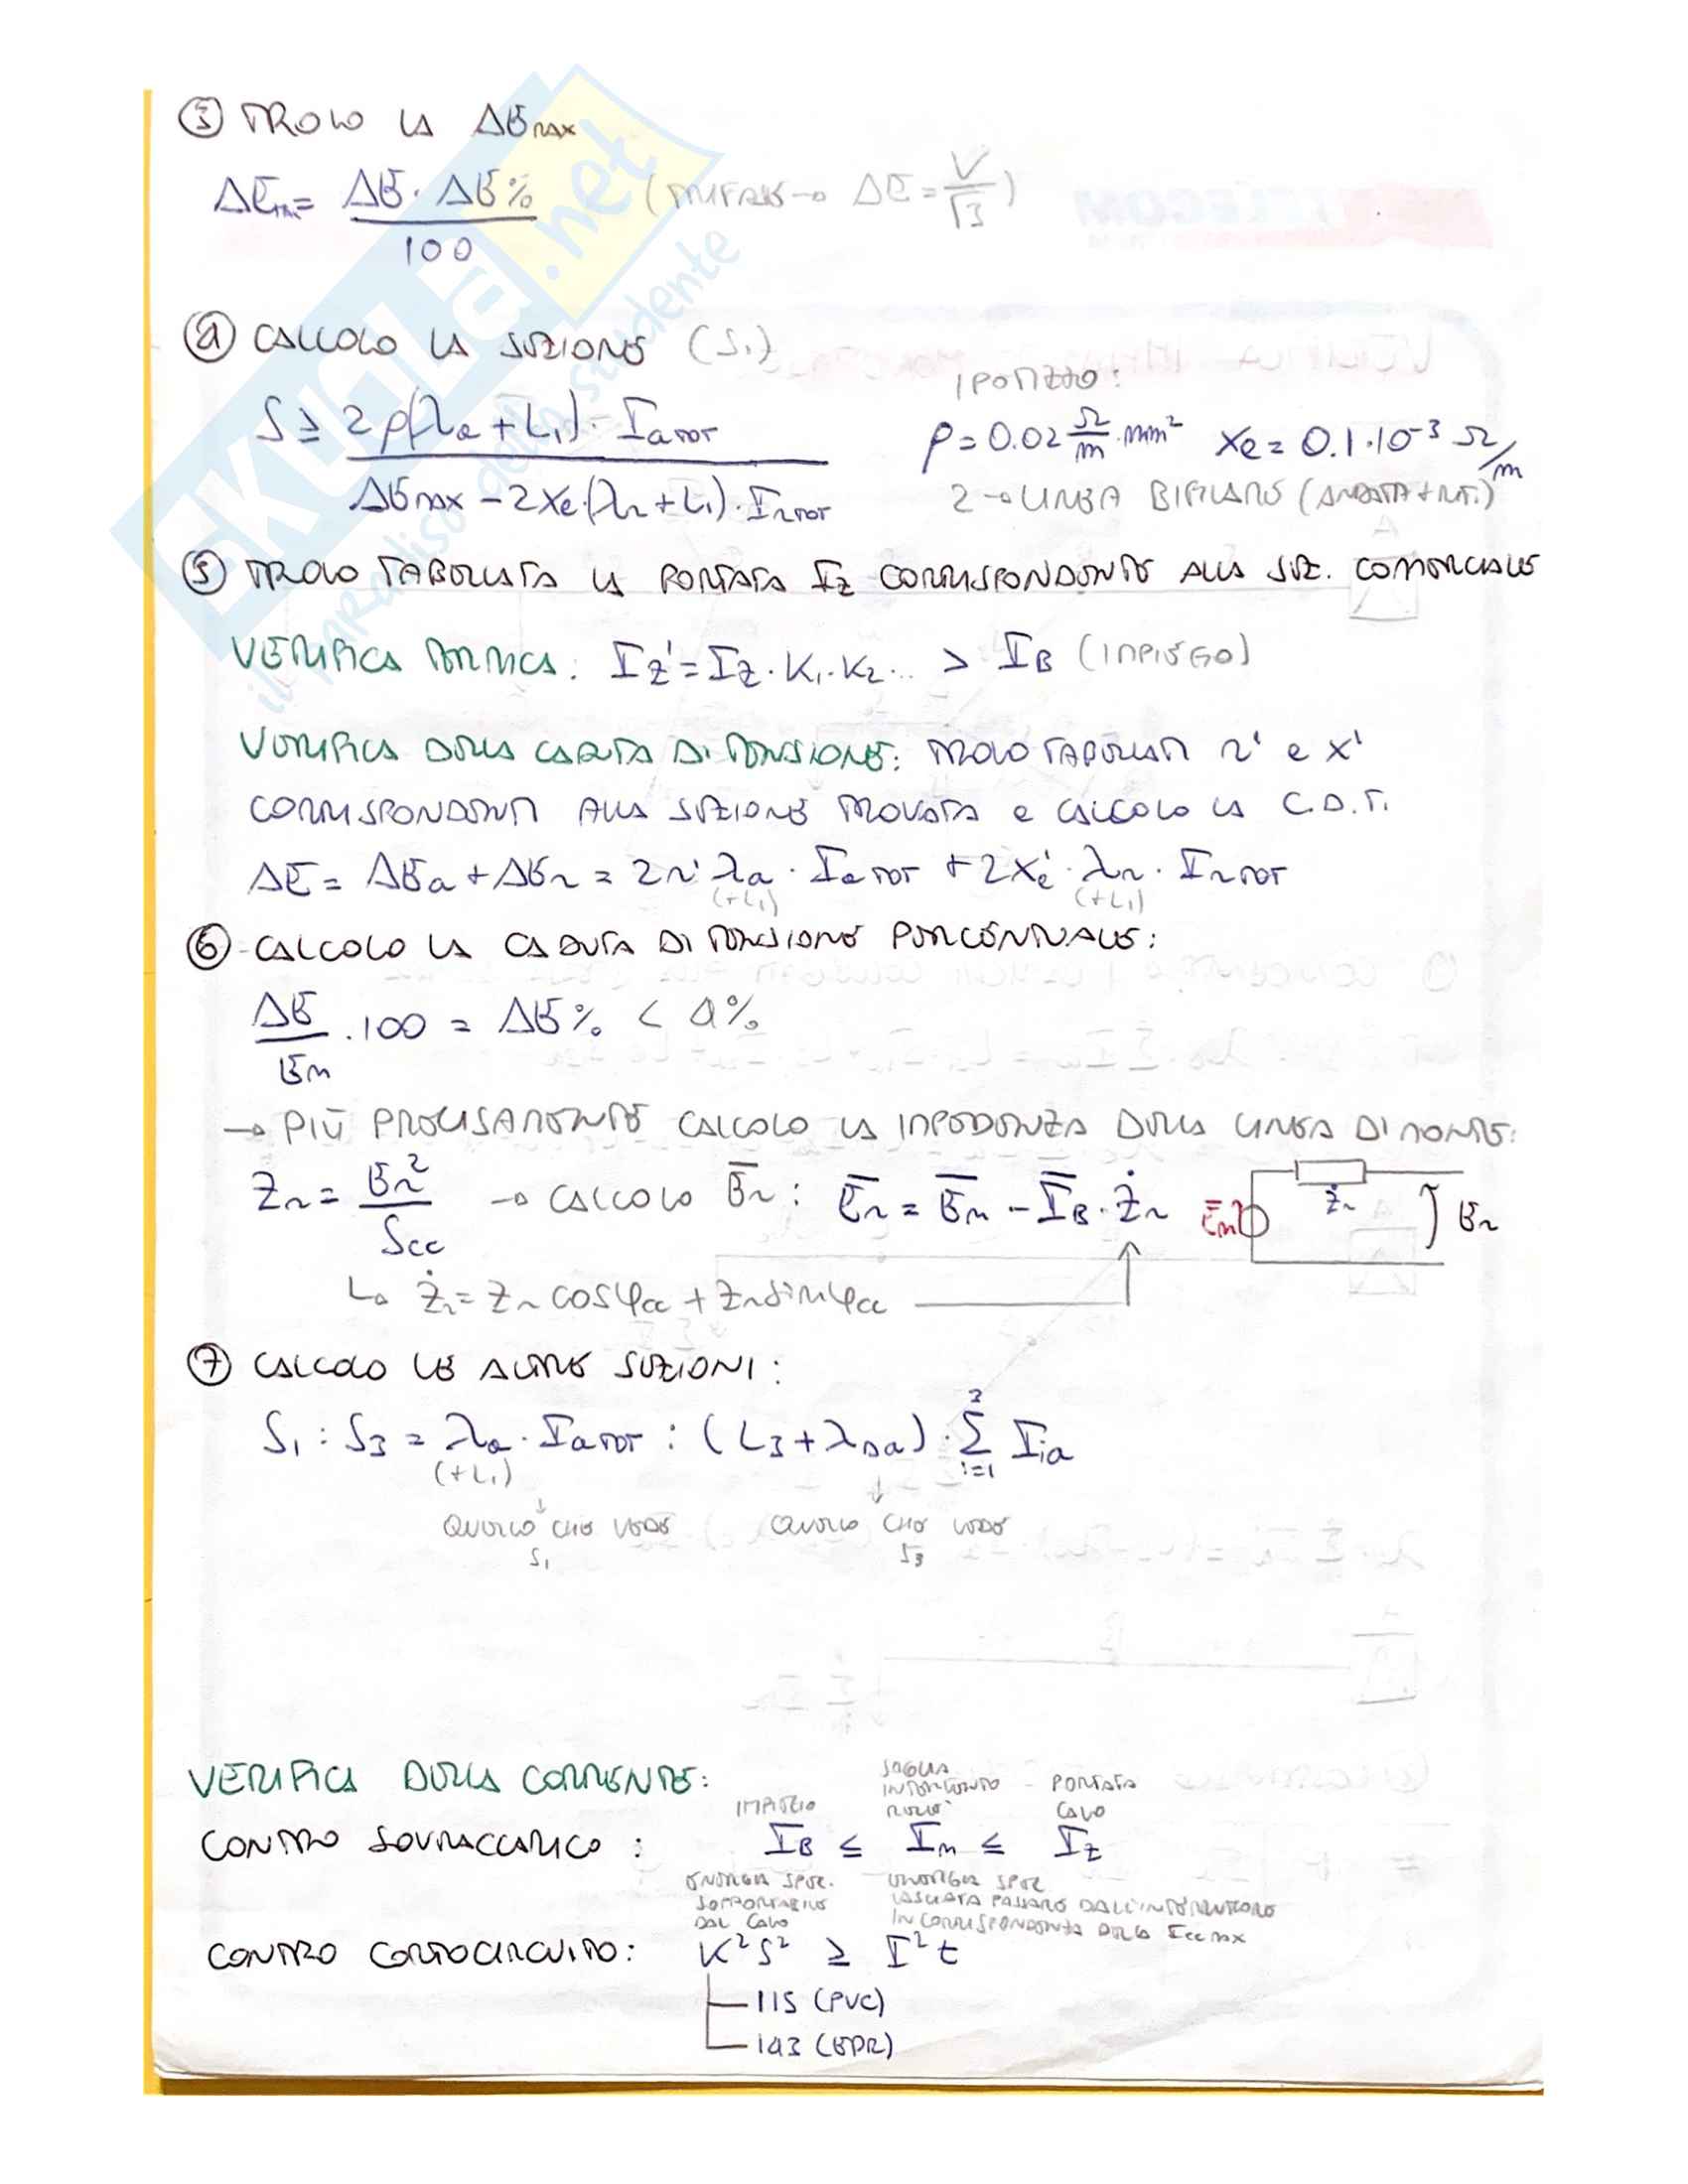 ③ TROVO LA ΔEmax
ΔEm = ΔE · ΔE% / 100 (TRIFASE → ΔE = V/√3)
④ CALCOLO LA SEZIONE (S₁)
S ≥ 2ρ(λa + L₁) · Ia TOT / ΔEmax - 2xe · (λr + L₁) · Ir TOT
IPOTIZZO:
ρ = 0.02 Ω/m · mm² xe = 0.1 · 10⁻³ Ω/m
2 → LINEA BIFILARE (ANDATA + RIT.)
⑤ TROVO TABELLATA LA PORTATA Iz CORRISPONDENTE ALLA SEZ. COMMERCIALE
VERIFICA TERMICA: Iz' = Iz · K₁ · K₂ .. > IB (IMPIEGO)
VERIFICA DELLA CADUTA DI TENSIONE: TROVO TABELLATI r' e x'
CORRISPONDENTI ALLA SEZIONE TROVATA e CALCOLO LA C.D.T.
ΔE = ΔEa + ΔEr = 2r' λa · Ia TOT + 2xe' · λr · Ir TOT
(+L₁) (+L₁)
⑥ CALCOLO LA CADUTA DI TENSIONE PERCENTUALE:
ΔE / En · 100 = ΔE% < 4%
→ PIÙ PRECISAMENTE CALCOLO LA IMPEDENZA DELLA LINEA DI MONTE:
Zr = Er² / Scc → CALCOLO Ēr : Ēr = Ēn - ĪB · Żr
Ēn Żr Er
↳ Żr = Zr cosφcc + Zr sinφcc
⑦ CALCOLO LE ALTRE SEZIONI:
S₁ : S₃ = λa · Ia TOT : (L₃ + λDa) · Σ Iia
3
i=1
(+L₁)
QUELLO CHE VEDE S₁
QUELLO CHE VEDE S₃
VERIFICA DELLA CORRENTE:
IMPIEGO
SOGLIA INTERVENTO RELÈ
PORTATA CAVO
CONTRO SOVRACCARICO : IB ≤ In ≤ Iz
ENERGIA SPEC. SOPPORTABILE DAL CAVO
ENERGIA SPEC LASCIATA PASSARE DALL'INTERRUTTORE IN CORRISPONDENZA DELLA Icc max
CONTRO CORTOCIRCUITO: K²S² ≥ I²t
115 (PVC)
143 (EPR)
SKUOLa.net
il paradiso dello studente